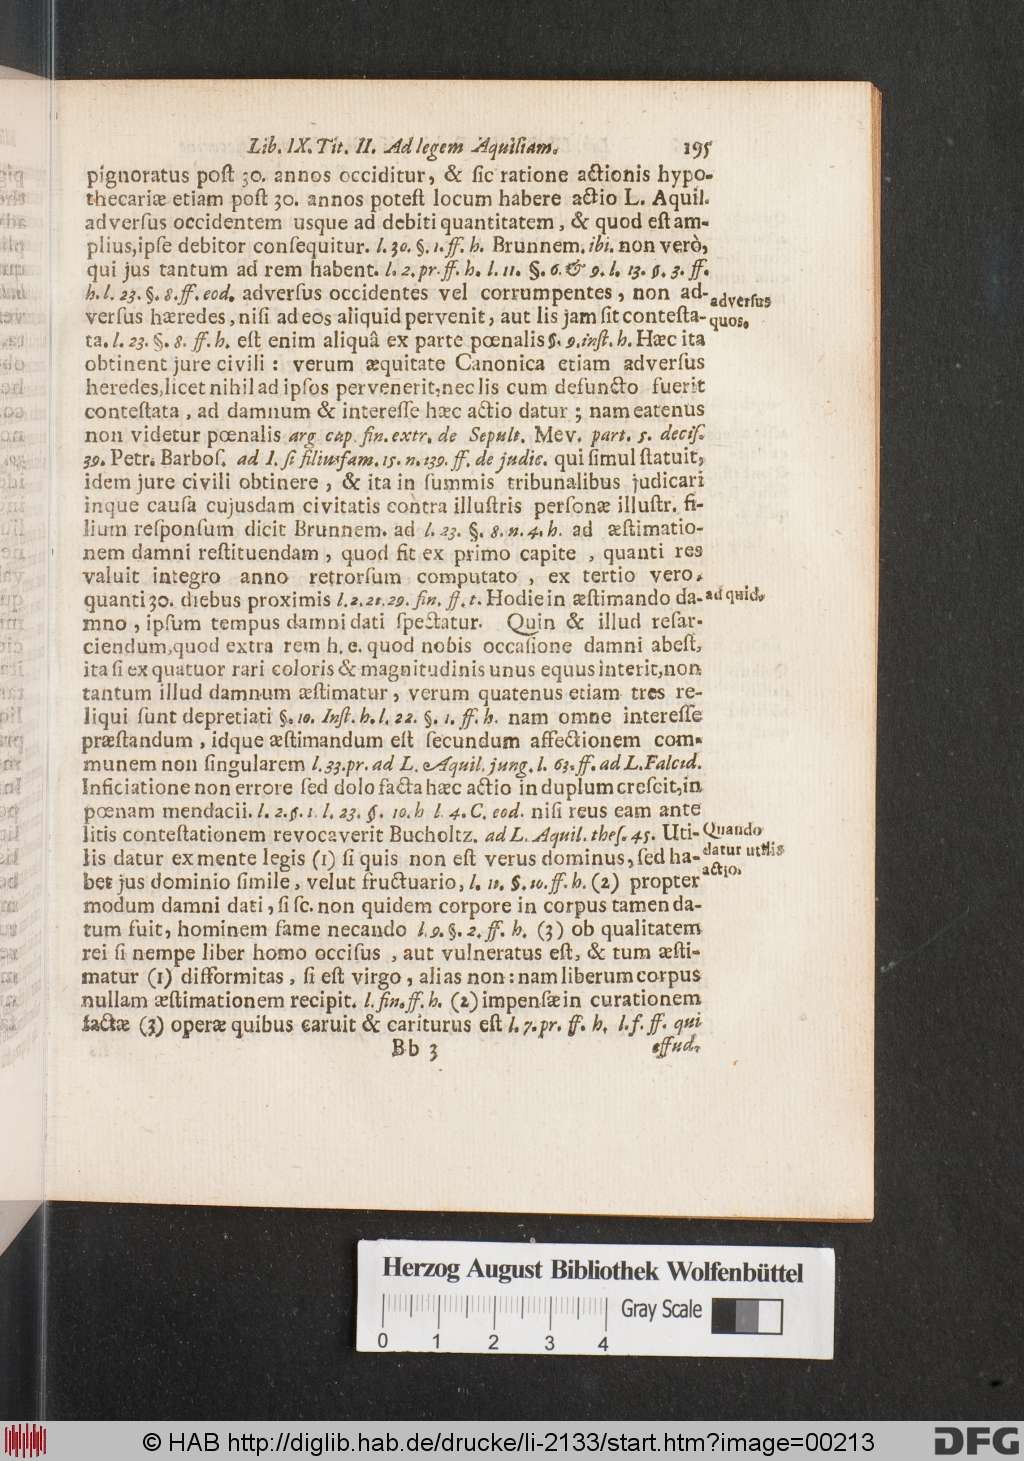 Lib. IX. Tit. II. Ad legem Aquiliam. 195
pignoratus poſt 30. annos occiditur, & ſic ratione actionis hypo-
thecariæ etiam poſt 30. annos poteſt locum habere actio L. Aquil.
adverſus occidentem usque ad debiti quantitatem, & quod eſt am-
plius, ipſe debitor conſequitur. l. 30. §. 1. ff. h. Brunnem. ibi. non verò,
qui jus tantum ad rem habent. l. 2. pr. ff. h. l. 11. §. 6. & 9. l. 13. §. 3. ff.
h. l. 23. §. 8. ff. eod. adverſus occidentes vel corrumpentes, non ad-
adverſus
verſus hæredes, niſi ad eos aliquid pervenit, aut lis jam ſit conteſta-
quos.
ta. l. 23. §. 8. ff. h. eſt enim aliquâ ex parte pœnalis §. 9. inſt. h. Hæc ita
obtinent jure civili : verum æquitate Canonica etiam adverſus
heredes, licet nihil ad ipſos pervenerit, nec lis cum defuncto fuerit
conteſtata, ad damnum & intereſſe hæc actio datur ; nam eatenus
non videtur pœnalis arg cap. fin. extr. de Sepult. Mev. part. 5. deciſ.
39. Petr. Barboſ. ad l. ſi filiusfam. 15. n. 139. ff. de judic. qui ſimul ſtatuit,
idem jure civili obtinere, & ita in ſummis tribunalibus judicari
inque cauſa cujusdam civitatis contra illuſtris perſonæ illuſtr. fi-
lium reſponſum dicit Brunnem. ad l. 23. §. 8. n. 4. h. ad æſtimatio-
nem damni reſtituendam, quod fit ex primo capite, quanti res
valuit integro anno retrorſum computato, ex tertio vero,
quanti 30. diebus proximis l. 2. 21. 29. fin. ff. t. Hodie in æſtimando da-
ad quid.
mno, ipſum tempus damni dati ſpectatur. Quin & illud reſar-
ciendum, quod extra rem h. e. quod nobis occaſione damni abeſt,
ita ſi ex quatuor rari coloris & magnitudinis unus equus interit, non
tantum illud damnum æſtimatur, verum quatenus etiam tres re-
liqui ſunt depretiati §. 10. Inſt. h. l. 22. §. 1. ff. h. nam omne intereſſe
præſtandum, idque æſtimandum eſt ſecundum affectionem com-
munem non ſingularem l. 33. pr. ad L. Aquil. jung. l. 63. ff. ad L. Falcid.
Inficiatione non errore ſed dolo facta hæc actio in duplum creſcit, in
pœnam mendacii. l. 2. §. 1. l. 23. §. 10. h l. 4. C. eod. niſi reus eam ante
litis conteſtationem revocaverit Bucholtz. ad L. Aquil. theſ. 45. Uti-
Quando
lis datur ex mente legis (1) ſi quis non eſt verus dominus, ſed ha-
datur utilis
bet jus dominio ſimile, velut fructuario, l. 11. §. 10. ff. h. (2) propter
actio.
modum damni dati, ſi ſc. non quidem corpore in corpus tamen da-
tum fuit, hominem fame necando l. 9. §. 2. ff. h. (3) ob qualitatem
rei ſi nempe liber homo occiſus, aut vulneratus eſt, & tum æſti-
matur (1) difformitas, ſi eſt virgo, alias non : nam liberum corpus
nullam æſtimationem recipit. l. fin. ff. h. (2) impenſæ in curationem
factæ (3) operæ quibus caruit & cariturus eſt l. 7. pr. ff. h. l. f. ff. qui
Bb 3 effud.
Herzog August Bibliothek Wolfenbüttel
Gray Scale
0 1 2 3 4
© HAB http://diglib.hab.de/drucke/li-2133/start.htm?image=00213
DFG